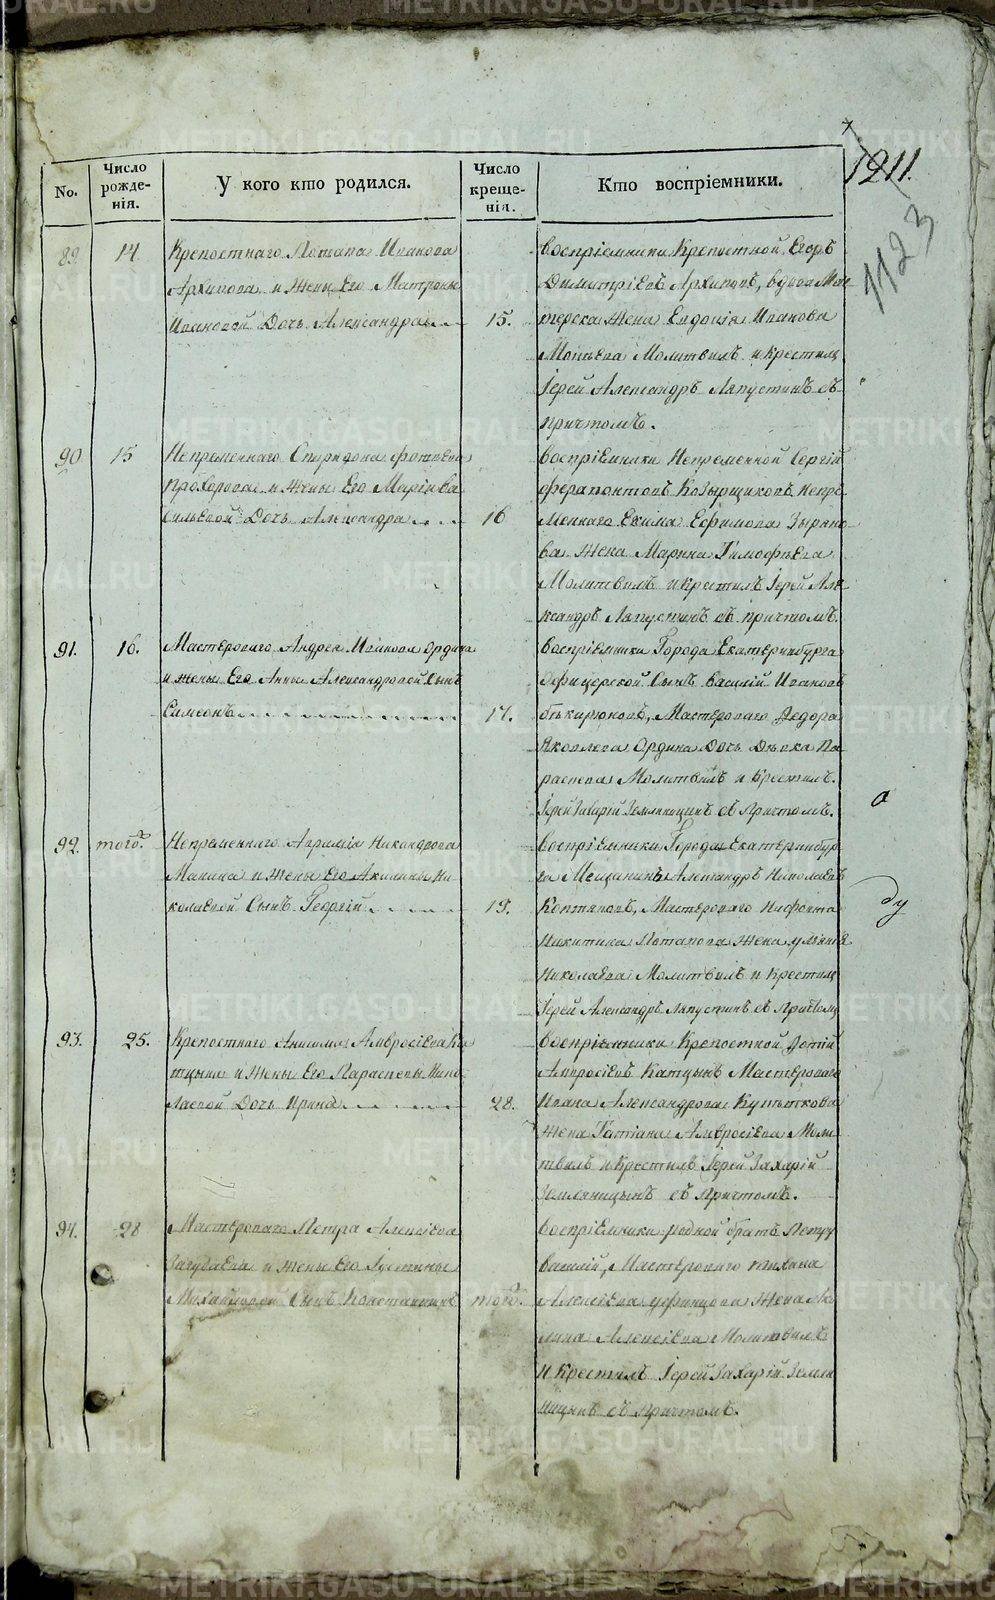 1211.
1123
No.
Число рожденія.
У кого кто родился.
Число крещенія.
Кто воспріемники.
89.
14
Крепостнаго Потапа Иванова
Архипова и жены Его Матроны
Ивановой Дочь Александра
15.
воспріемники Крепостной Егоръ
Димитріевъ Архиповъ, вдова Мас
терска жена Евдокія Иванова
Молитвилъ и крестилъ
Іерей Александръ Ляпустинъ съ
причтомъ.
90
15
Непременнаго Спиридона
Прохорова и жены Его Маріи Ва
сильевой Дочь Александра
16
воспріемники Непременной Сергій
Ферапонтовъ Козырщиковъ Непре
меннаго Екима Ефимова Зыряно
ва жена Марина Тимофѣева
Молитвилъ и Крестилъ Іерей Але
ксандръ Ляпустинъ съ причтомъ.
91.
16.
Мастероваго Андрея Иванова Ордина
и жены Его Анны Александровой Сынъ
Симеонъ
17.
воспріемники Города Екатеринбурга
Офицерской Сынъ Василій Ивановъ
Мастероваго Федора
Яковлева Ордина Дочь Девка Па
расковья Молитвилъ и Крестилъ
Іерей Захарій Земляницынъ съ Причтомъ.
92.
того.
Непременнаго Аврамія Никандрова
Манина и жены Его Акилины Ни
колаевой Сынъ Георгій
19.
воспріемники Города Екатеринбур
га Мещанинъ Александръ Николаевъ
Коптяковъ, Мастероваго Нифонта
Никитина Потапова жена Ульяна
Николаева Молитвилъ и Крестилъ
Іерей Александръ Ляпустинъ съ Причтомъ
93.
25.
Крепостнаго Анисима Амвросіева Ка
тцына и жены Его Параскевы Нико
лаевой Дочь Ирина
28.
воспріемники Крепостной Фотій
Амвросіевъ Катцынъ Мастероваго
Ивана Александрова
жена Татіана Амвросіева Моли
твилъ и Крестилъ Іерей Захарій
Земляницынъ съ Причтомъ.
94.
28
Мастероваго Петра Алексіева
и жены Его Іустины
Михайловой Сынъ Константинъ
того.
воспріемники родной братъ Петру
Василій, Мастероваго
Алексіева жена
Алексіева Молитвилъ
и Крестилъ Іерей Захарій Земля
ницынъ съ Причтомъ.
METRIKI.GASO-URAL.RU